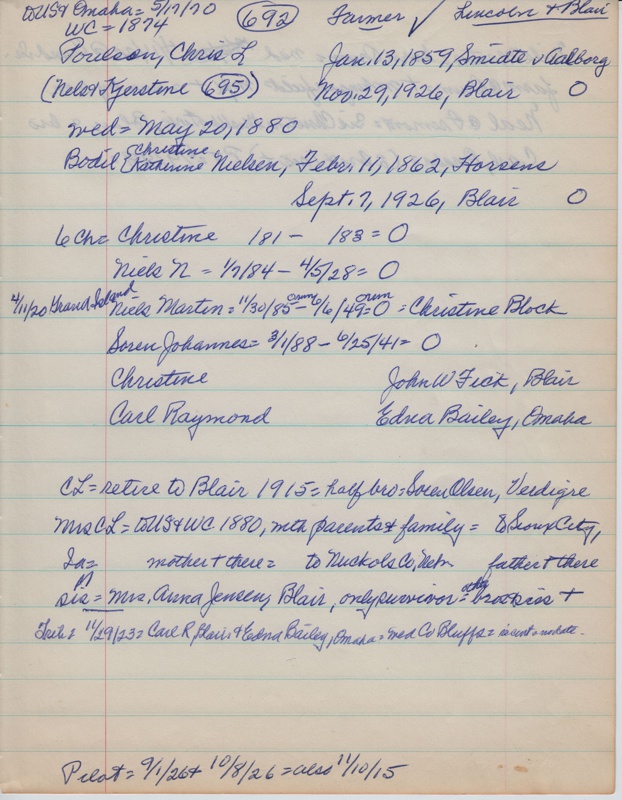 to US & Omaha = 5/17/70 (692) Farmer ✓ Lincoln + Blair
WC = 1874
Poulson, Chris L Jan. 13, 1859, Smidte v Aalborg
(Nels & Kjerstine (695)) Nov. 29, 1926, Blair O
wed = May 20, 1880
Bodil { Christine Katherine Nielsen, Febr. 11, 1862, Horsens
Sept. 7, 1926, Blair O
6 Ch = Christine 181 - 183 = O
Niels N = 1/7/84 - 4/5/28 = O
4/11/20 Grand Island Niels Martin = 11/30/85 - 6/6/49 = O = Christine Block
Soren Johannes = 3/1/88 - 6/25/41 = O
Christine John W Fick, Blair
Carl Raymond Edna Bailey, Omaha
CL = retire to Blair 1915 = half bro = Soren Olsen, Verdigre
Mrs CL = to US & WC 1880, with parents & family = to Sioux City,
Ia = mother + there = to Nuckols Co, Nebr father + there
sis = Mrs. Anna Jensen, Blair, only survivor = other bros & sis +
Trib = 11/29/23 = Carl R, Blair, & Edna Bailey, Omaha = wed Co Bluffs = recent = no date.
Pilot = 9/1/26 + 10/8/26 = also 11/10/15